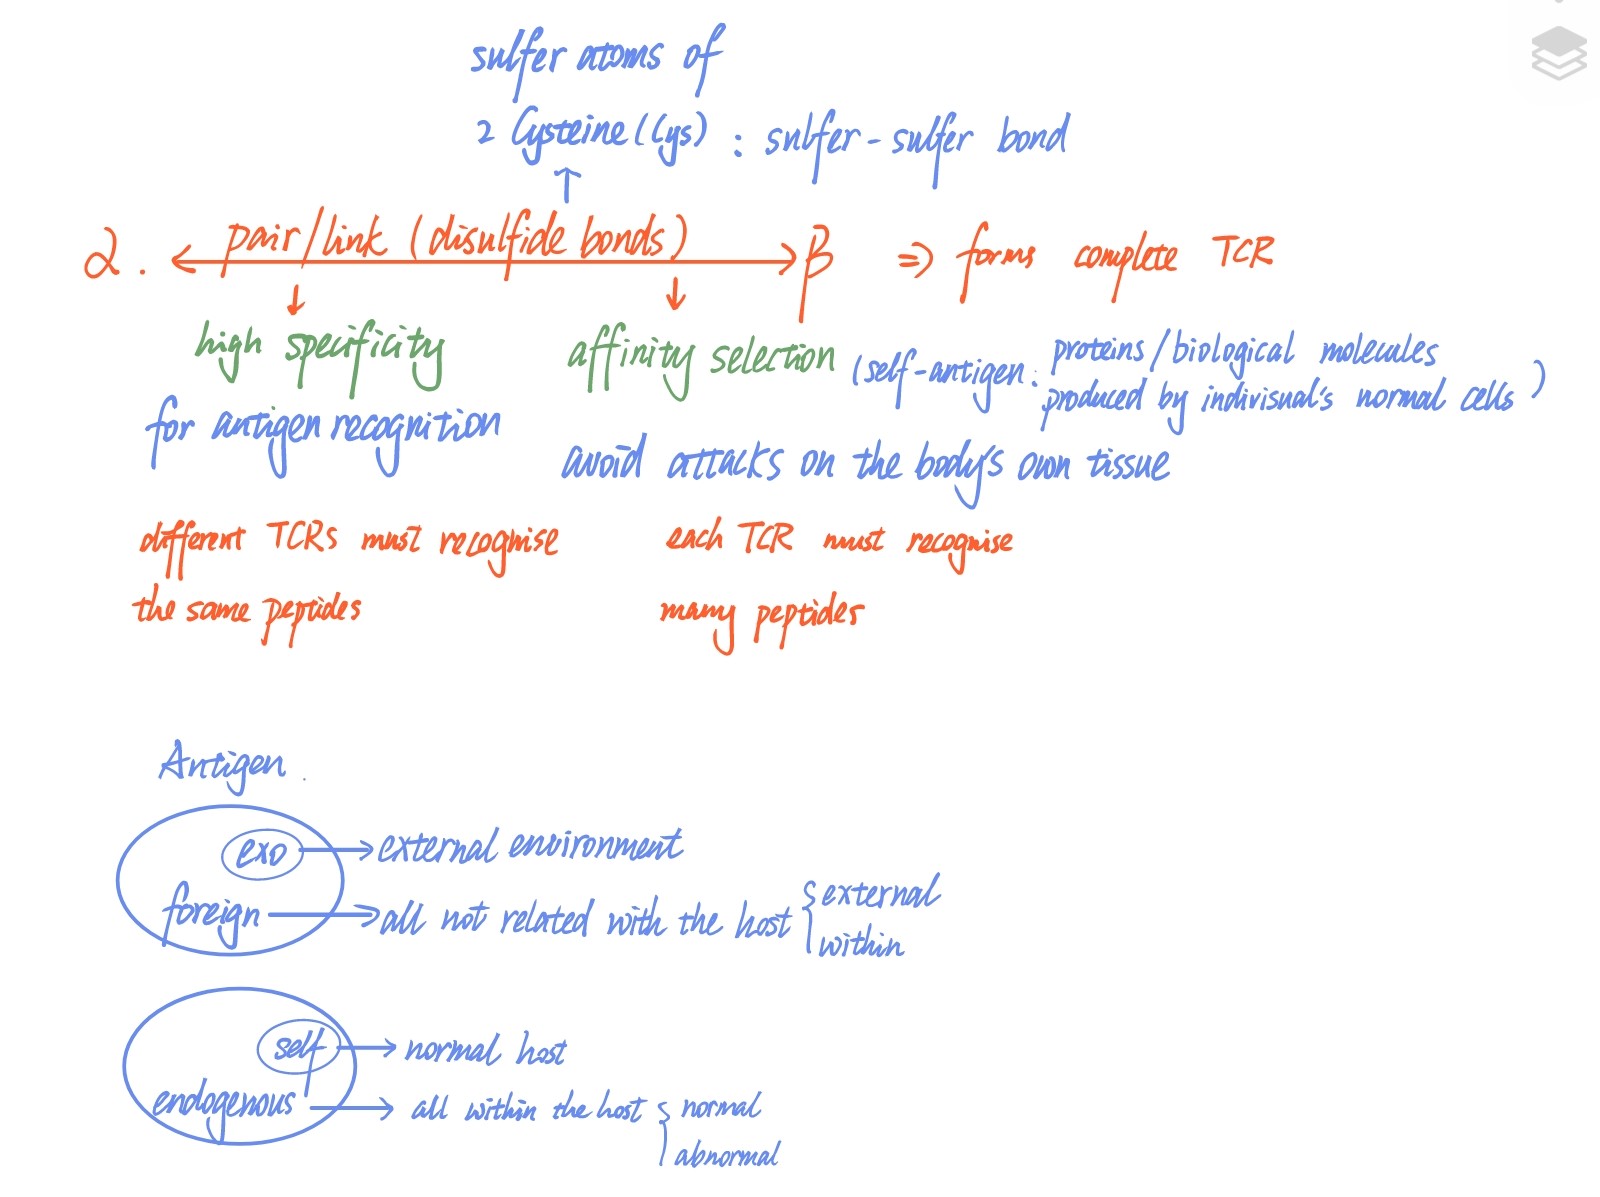 sulfer atoms of
2 Cysteine (Cys) : sulfer-sulfer bond
↑
α. pair/link (disulfide bonds) β ⇒ forms complete TCR
↓ ↓
high specificity affinity selection (self-antigen: proteins/biological molecules
produced by indivisual's normal cells)
for antigen recognition avoid attacks on the body's own tissue
different TCRs must recognise each TCR must recognise
the same peptides many peptides
Antigen
exo → external environment
foreign → all not related with the host { external
within
self → normal host
endogenous → all within the host { normal
abnormal